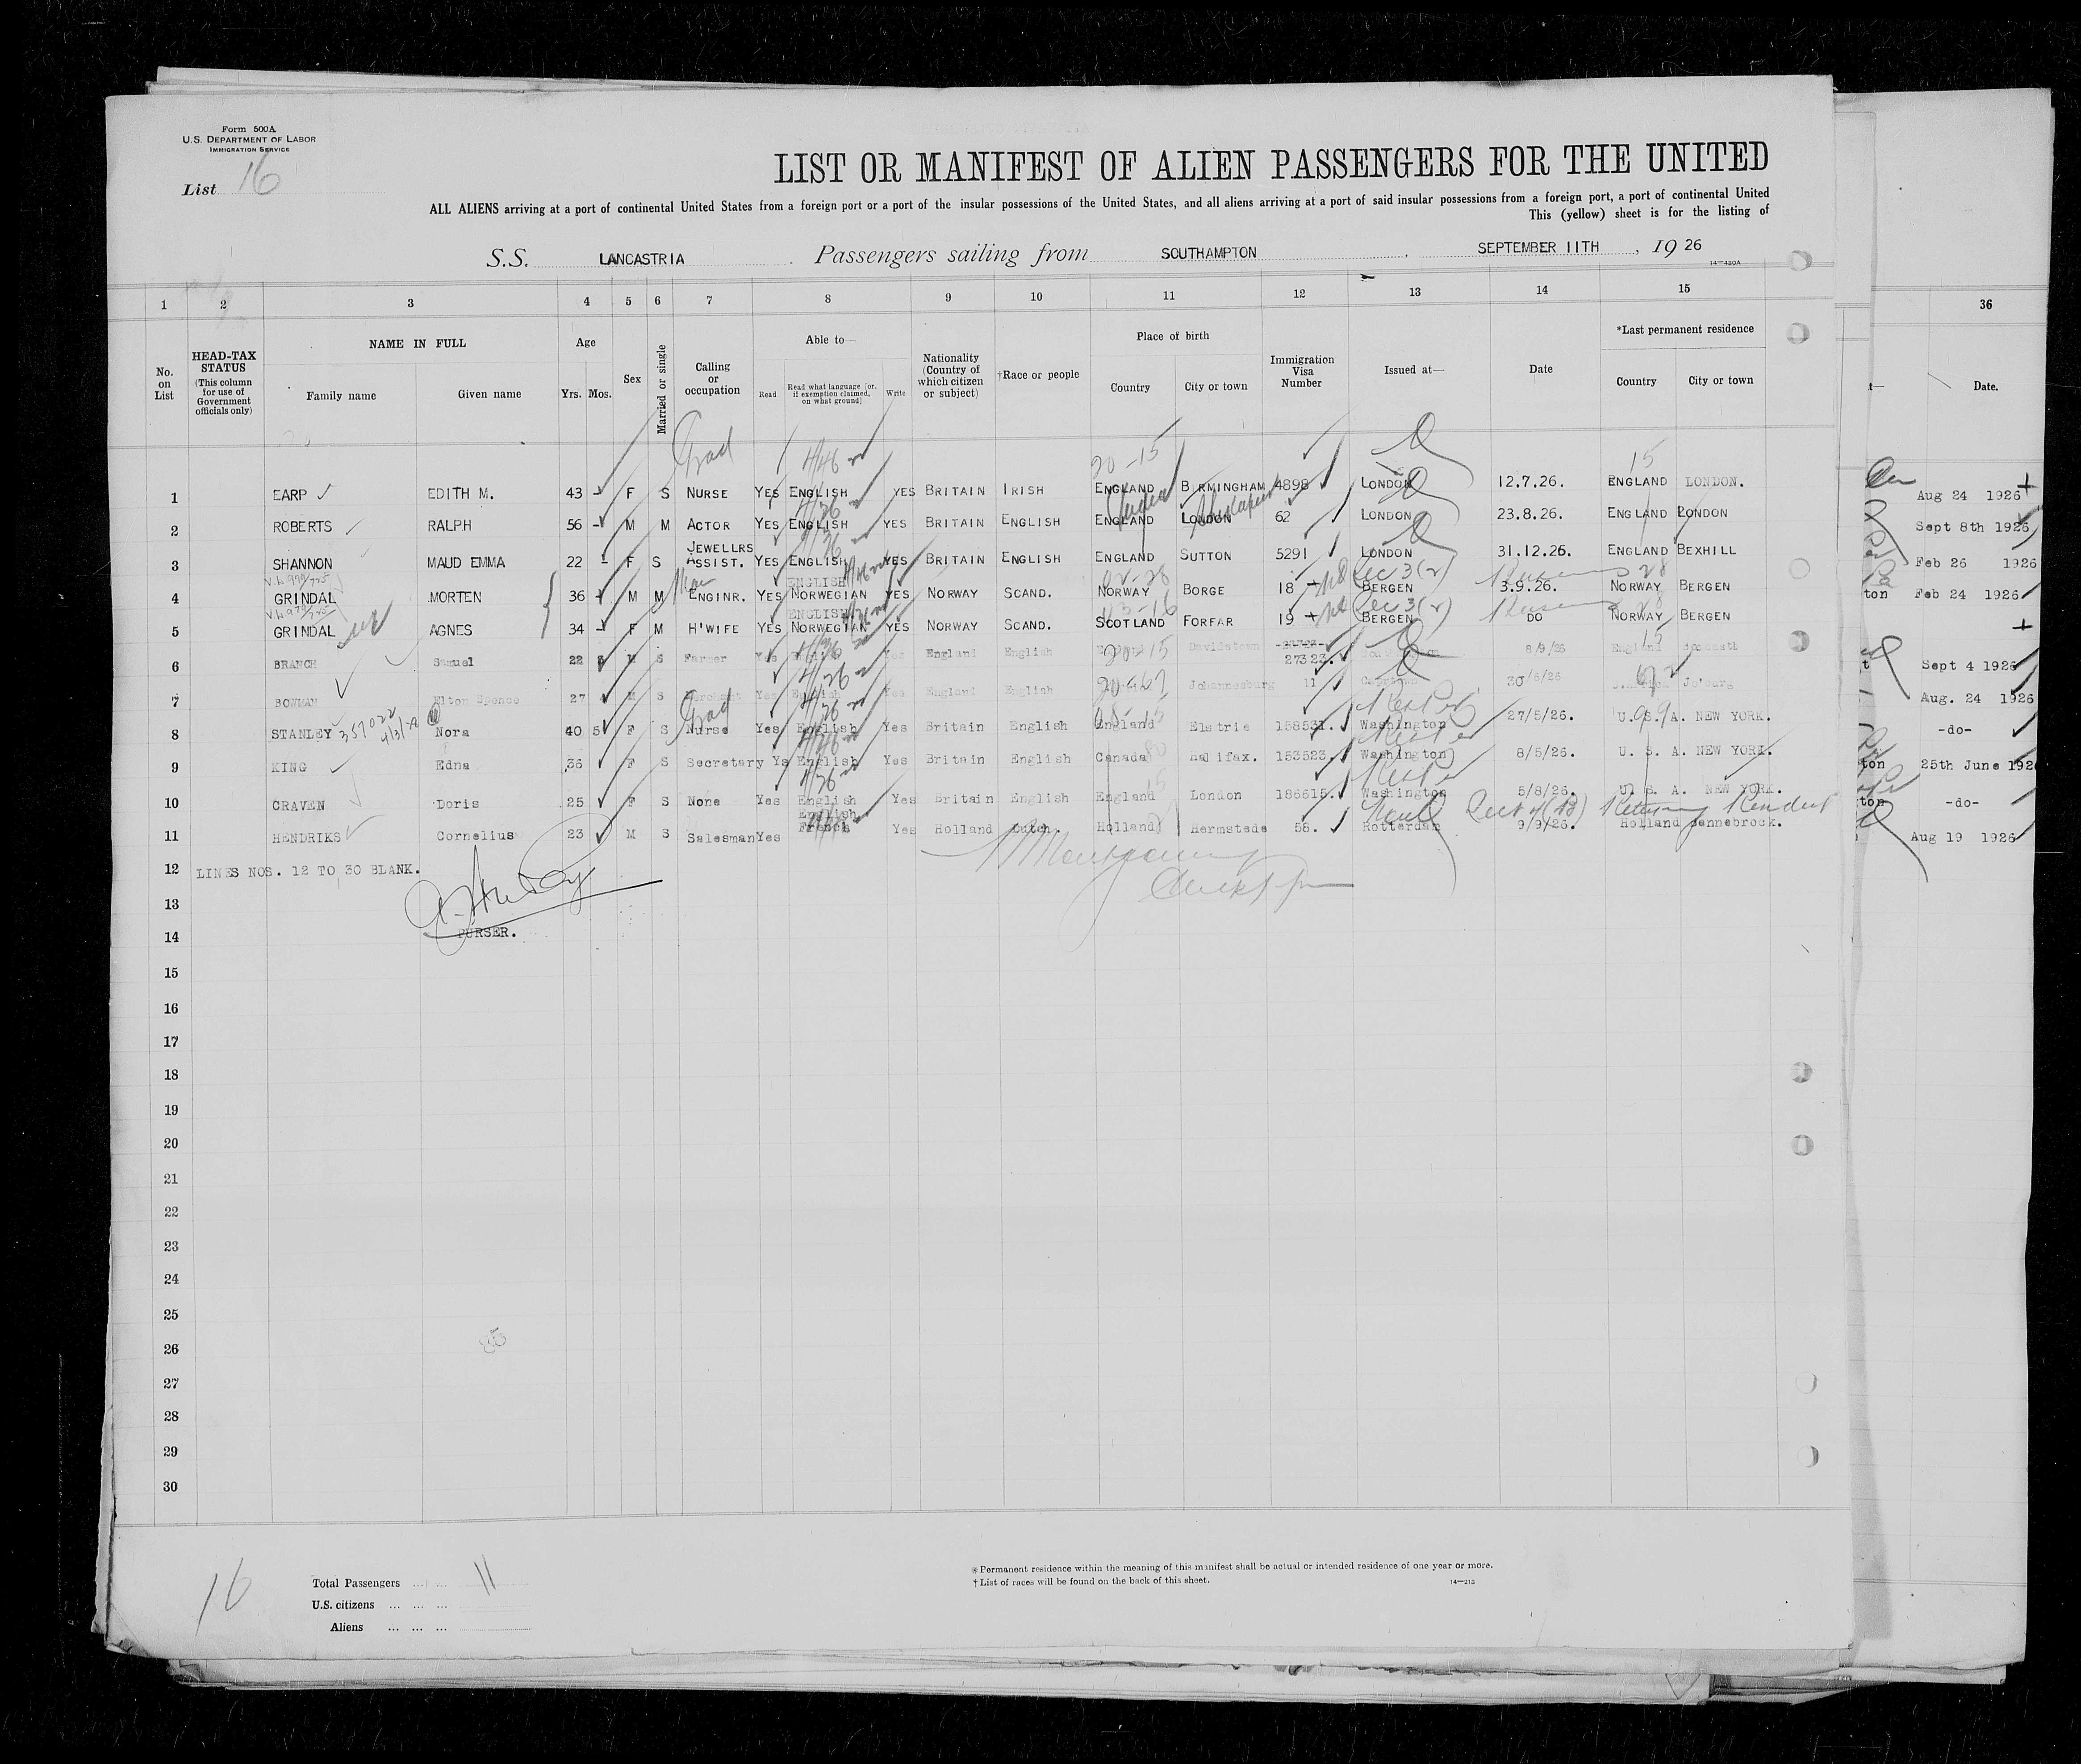 Form 500A
U.S. DEPARTMENT OF LABOR
IMMIGRATION SERVICE
List 16
LIST OR MANIFEST OF ALIEN PASSENGERS FOR THE UNITED
ALL ALIENS arriving at a port of continental United States from a foreign port or a port of the insular possessions of the United States, and all aliens arriving at a port of said insular possessions from a foreign port, a port of continental United
This (yellow) sheet is for the listing of
S.S. LANCASTRIA Passengers sailing from SOUTHAMPTON, SEPTEMBER 11TH, 1926
14—430A
1 2 3 4 5 6 7 8 9 10 11 12 13 14 15 36
No. on List
HEAD-TAX STATUS (This column for use of Government officials only)
NAME IN FULL
Family name
Given name
Age
Yrs. Mos.
Sex
Married or single
Calling or occupation
Able to—
Read
Read what language [or, if exemption claimed, on what ground]
Write
Nationality (Country of which citizen or subject)
†Race or people
Place of birth
Country
City or town
Immigration Visa Number
Issued at—
Date
*Last permanent residence
Country
City or town
Date.
Grad 4/26 20-15 15
1 EARP EDITH M. 43 - F S NURSE YES ENGLISH YES BRITAIN IRISH ENGLAND BIRMINGHAM 4898 LONDON 12.7.26. ENGLAND LONDON. Aug 24 1926
2 ROBERTS RALPH 56 - M M ACTOR YES ENGLISH YES BRITAIN ENGLISH ENGLAND LONDON 62 LONDON 23.8.26. ENGLAND LONDON Sept 8th 1926
3 SHANNON MAUD EMMA 22 - F S JEWELLRS ASSIST. YES ENGLISH YES BRITAIN ENGLISH ENGLAND SUTTON 5291 LONDON 31.12.26. ENGLAND BEXHILL Feb 26 1926
4 GRINDAL MORTEN 36 M M ENGINR. YES ENGLISH NORWEGIAN YES NORWAY SCAND. NORWAY BORGE 18 BERGEN 3.9.26. NORWAY BERGEN ton Feb 24 1926
5 GRINDAL AGNES 34 - F M H'WIFE YES ENGLISH NORWEGIAN YES NORWAY SCAND. SCOTLAND FORFAR 19 BERGEN DO NORWAY BERGEN
6 BRANCH Samuel 22 M S Farmer Yes English Yes England English 27323. 8/9/26 England Sept 4 1926
7 BOWMAN Elton Spence 27 M S Merchant Yes English Yes England English Johannesburg 11 Capetown Jo'burg Aug. 24 1926
8 STANLEY Nora 40 5 F S Nurse Yes English Yes Britain English England Elstrie 158531. Washington 27/5/26. U. S. A. NEW YORK. -do-
9 KING Edna 36 F S Secretary Ys English Yes Britain English Canada Halifax. 153523. Washington 8/5/26. U. S. A. NEW YORK. ton 25th June 192
10 CRAVEN Doris 25 F S None Yes English Yes Britain English England London 186615. Washington 5/8/26. U. S. A. NEW YORK. ton -do-
11 HENDRIKS Cornelius 23 M S Salesman Yes English French Yes Holland Dutch. Holland Hermstede 58. Rotterdam 9/9/26. Holland Bennebrock. Aug 19 1926
12 LINES NOS. 12 TO 30 BLANK.
13
14 PURSER.
15
16
17
18
19
20
21
22
23
24
25
26
27
28
29
30
16
Total Passengers ... ... 11
U.S. citizens ... ... ...
Aliens ... ... ...
*Permanent residence within the meaning of this manifest shall be actual or intended residence of one year or more.
†List of races will be found on the back of this sheet.
14—213